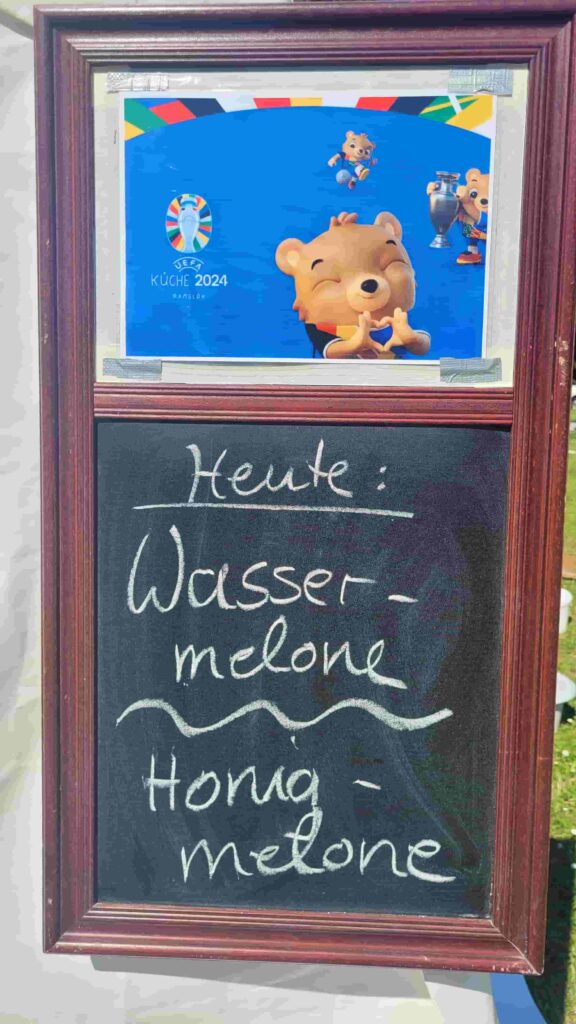 UEFA
KÜCHE 2024
RAMSLOH
Heute:
Wasser-
melone
Honig-
melone